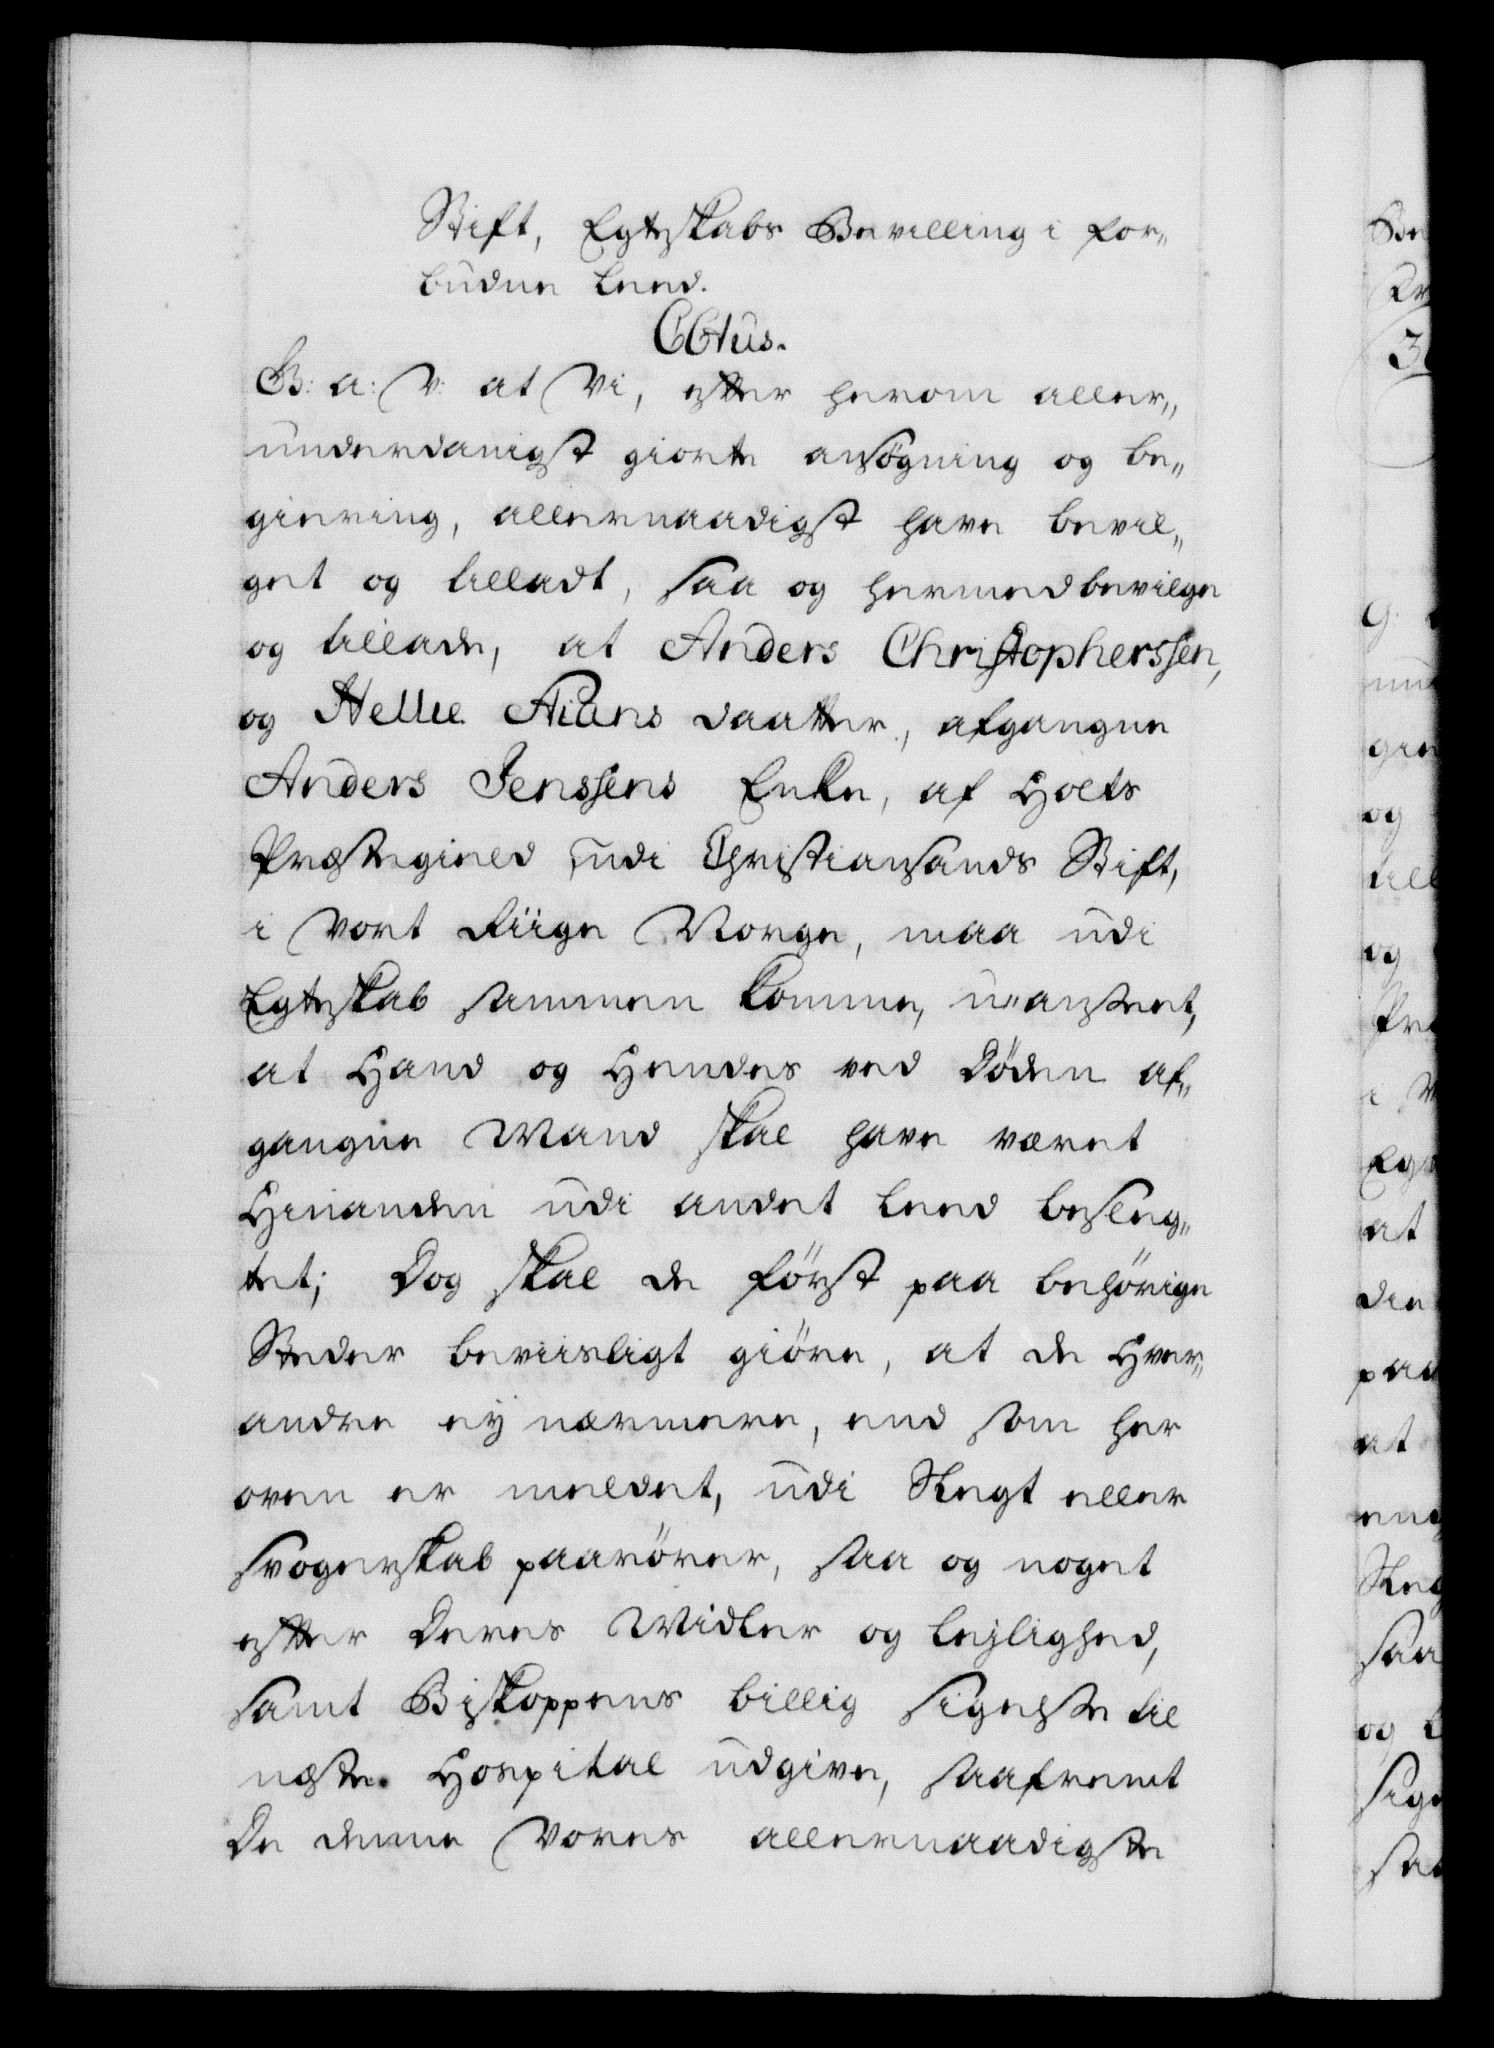 Stift, Egteskabs Bevilling i for„
budne Leed.
C6tus.
G: a: V: at Vi, efter herom aller„
underdanigst giorte ansögning og be„
giering, allernaadigst have bevil„
get og tilladt, saa og hermed bevilge
og tillade, at Anders Christopherssen,
og Hellie Aians daatter, afgangne
Anders Jenssens Enke, af Holts
Præstegield udi Christiansands Stift,
i Vort Riige Norge, maa udi
Egteskab sammen komme, u„anseet,
at Hand og Hendes ved Döden af„
gangne Mand skal have været
Hinanden udi andet Leed beslæg„
tet; Dog skal de först paa behörige
Steder beviisligt giöre, at de Hver„
andre eÿ nærmere, end som her
oven er meldet, udi Slegt eller
Svogerskab paarörer, saa og noget
efter Deres Midler og Lejlighed,
samt Biskoppens billig sigelse til
næste Hospital udgive, saafremt
De denne Vores allernaadigste